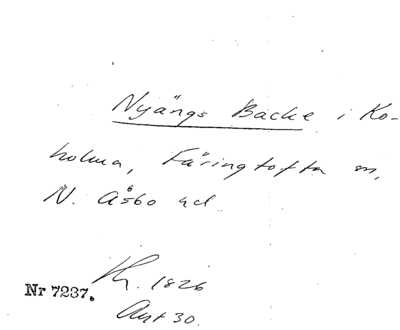 Nyängs Backe i Ko-
holma, Färingtofta sn,
N. Åsbo hd
Nr 7237. Kh. 1826
Avt 30.